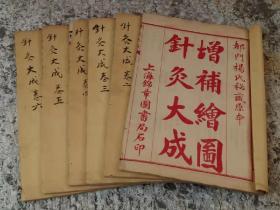 都門楊氏秘藏原本
增補繪圖
針灸大成
上海錦章圖書局石印
針灸大成 卷二
針灸大成 卷三
針灸大成 卷四
針灸大成 卷五
針灸大成 卷六